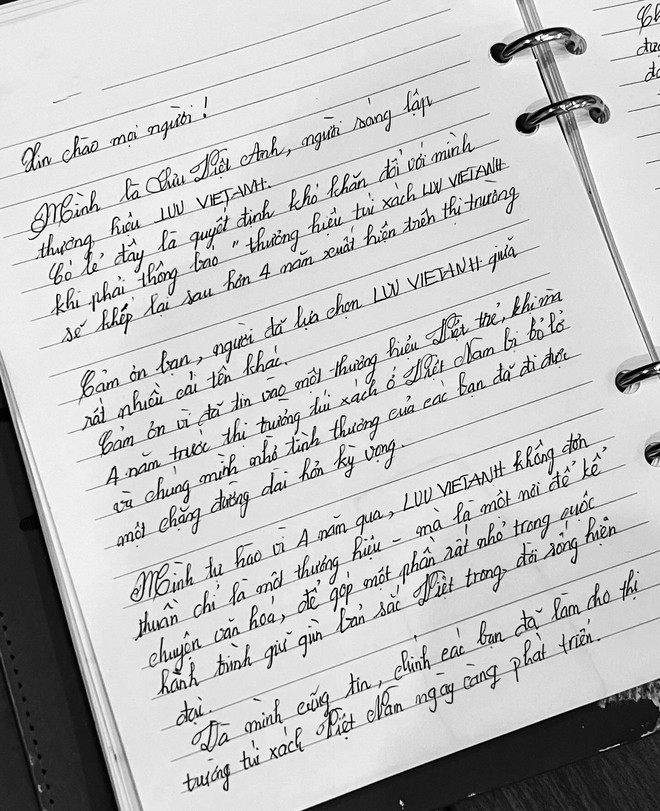 Xin chào mọi người!
Mình là Lưu Việt Anh, người sáng lập
thương hiệu LUU VIETANH.
Có lẽ đây là quyết định khó khăn đối với mình
khi phải thông báo "thương hiệu túi xách LUU VIETANH
sẽ khép lại sau hơn 4 năm xuất hiện trên thị trường
Cảm ơn bạn, người đã lựa chọn LUU VIETANH giữa
rất nhiều cái tên khác.
Cảm ơn vì đã tin vào một thương hiệu Việt trẻ, khi mà
4 năm trước thị trường túi xách ở Việt Nam bị bỏ lỏ
và chúng mình nhờ tình thương của các bạn đã đi được
một chặng đường dài hơn kỳ vọng.
Mình tự hào vì 4 năm qua, LUU VIETANH không đơn
thuần chỉ là một thương hiệu - mà là một nơi để kể
chuyện văn hoá, để góp một phần rất nhỏ trong cuộc
hành trình giữ gìn bản sắc Việt trong đời sống hiện
đại.
Và mình cũng tin, chính các bạn đã làm cho thị
trường túi xách Việt Nam ngày càng phát triển.